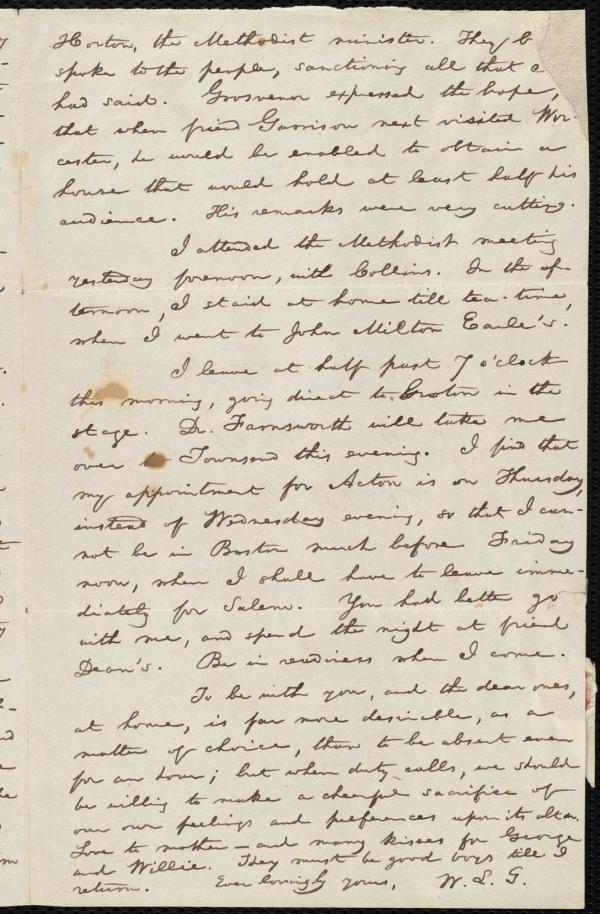 Horton, the Methodist minister. They b
spoke to the people, sanctioning all that
had said. Grosvenor expressed the hope,
that when friend Garrison next visited Wor-
cester, he would be enabled to obtain a
house that would hold at least half his
audience. His remarks were very cutting.
I attended the Methodist meeting
yesterday forenoon, with Collins. In the af-
ternoon, I staid at home till tea-time,
when I went to John Milton Earle's.
I leave at half past 7 o'clock
this morning, going direct to Groton in the
stage. Dr. Farnsworth will take me
over to Townsend this evening. I find that
my appointment for Acton is on Thursday,
instead of Wednesday evening, so that I can-
not be in Boston much before Friday
noon, when I shall have to leave imme-
diately for Salem. You had better go
with me, and spend the night at friend
Dean's. Be in readiness when I come.
To be with you, and the dear ones,
at home, is far more desirable, as a
matter of choice, than to be absent even
for an hour; but when duty calls, we should
be willing to make a cheerful sacrifice of
our own feelings and preferences upon its altar.
Love to mother—and many kisses for George
and Willie. They must be good boys till I
return. Ever lovingly yours, W. L. G.